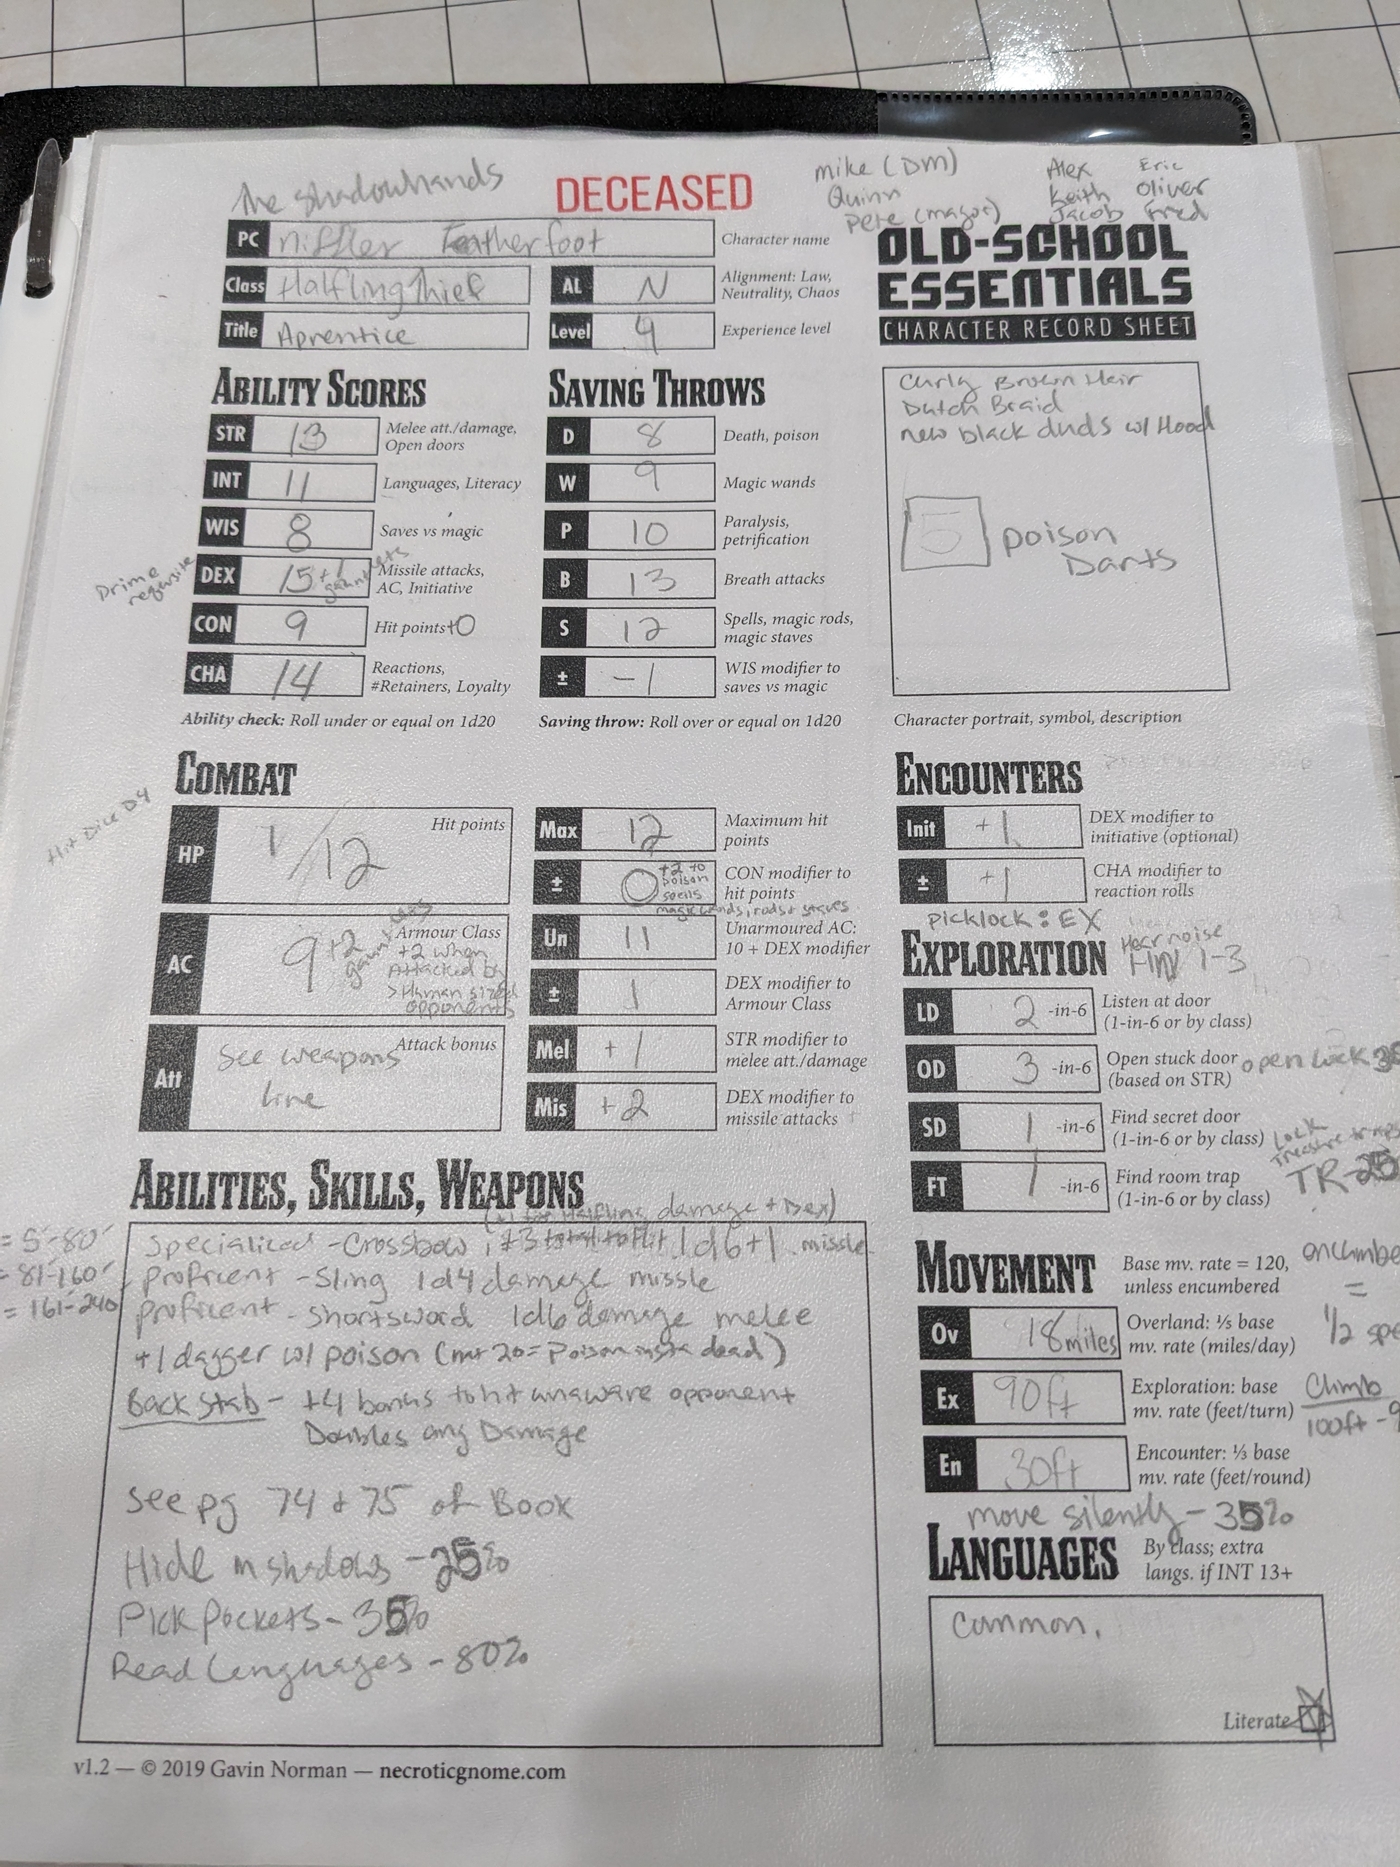 The Shadowhands
DECEASED
mike (DM)
Quinn
Pete (major)
Alex
Keith
Jacob
Eric
Oliver
Fred
PC niffler Featherfoot Character name
Class Halfling Thief
AL N Alignment: Law, Neutrality, Chaos
Title Aprentice
Level 4 Experience level
OLD-SCHOOL
ESSENTIALS
CHARACTER RECORD SHEET
ABILITY SCORES
STR 13 Melee att./damage, Open doors
INT 11 Languages, Literacy
WIS 8 Saves vs magic
Prime requisite
DEX 15 +1 gauntlets Missile attacks, AC, Initiative
CON 9 Hit points +0
CHA 14 Reactions, #Retainers, Loyalty
Ability check: Roll under or equal on 1d20
SAVING THROWS
D 8 Death, poison
W 9 Magic wands
P 10 Paralysis, petrification
B 13 Breath attacks
S 12 Spells, magic rods, magic staves
± -1 WIS modifier to saves vs magic
Saving throw: Roll over or equal on 1d20
Curly Brown Hair
Dutch Braid
new black duds w/ Hood
5 poison
Darts
Character portrait, symbol, description
COMBAT
Hit Dice D4
HP 1/12 Hit points
AC 9 +2 gauntlets Armour Class
+2 when
Attacked by
>Human sized
opponents
Att See weapons Attack bonus
line
Max 12 Maximum hit points
± 0 +2 to poison spells CON modifier to hit points
magic wands, rods + staves
Un 11 Unarmoured AC: 10 + DEX modifier
± 1 DEX modifier to Armour Class
Mel +1 STR modifier to melee att./damage
Mis +2 DEX modifier to missile attacks
ENCOUNTERS
Init +1 DEX modifier to initiative (optional)
± +1 CHA modifier to reaction rolls
picklock: EX
EXPLORATION
Hear noise
HN 1-3
LD 2 -in-6 Listen at door (1-in-6 or by class)
OD 3 -in-6 Open stuck door (based on STR)
open Lock
SD 1 -in-6 Find secret door (1-in-6 or by class)
Lock
Treasure traps
FT 1 -in-6 Find room trap (1-in-6 or by class)
TR-25
MOVEMENT
Base mv. rate = 120, unless encumbered
=
1/2
Ov 18 miles Overland: ⅕ base mv. rate (miles/day)
Ex 90ft Exploration: base mv. rate (feet/turn)
Climb
100ft -
En 30ft Encounter: ⅓ base mv. rate (feet/round)
move silently - 35%
LANGUAGES
By class; extra langs. if INT 13+
Common,
Literate
ABILITIES, SKILLS, WEAPONS
(+1 for Halfling damage + Dex)
= 5'-80'
= 81-160'
= 161-240'
Specialized - Crossbow, +3 total to Hit 1d6+1 missle
proficent - Sling 1d4 damage missle
proficent - shortsword 1d6 damage melee
+1 dagger w/ poison (nat 20= Poison insta dead)
Back Stab - +4 bonus to hit unaware opponent
Doubles any Damage
See pg 74 + 75 of Book
Hide in shadows - 25%
Pick Pockets - 35%
Read Languages - 80%
v1.2 — © 2019 Gavin Norman — necroticgnome.com